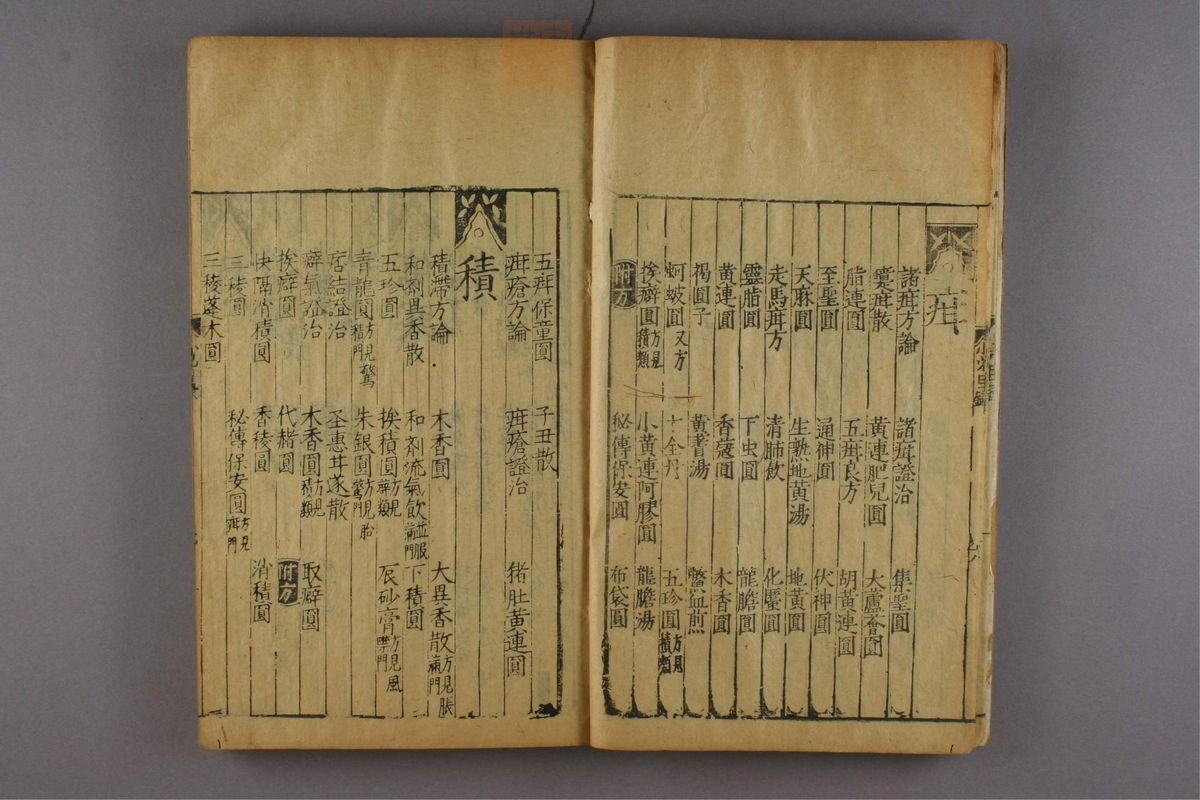 疳
諸疳方論　諸疳證治　集聖圓
蘘疳散　黃連肥兒圓　大蘆薈圓
脂連圓　五疳良方　胡黃連圓
至聖圓　通神圓　伏神圓
天麻圓　生熟地黃湯　地黃圓
走馬疳方　清肺飲　化䘌圓
靈脂圓　下虫圓　龍膽圓
黃連圓　香蔻圓　木香圓
褐圓子　黃蓍湯　鱉血煎
蚵蚾圓　又方　十全丹　五珍圓方見積類
挨癖圓方見積類　小黃連阿膠圓　龍膽湯
附方　秘傳保安圓　布袋圓
五疳保童圓　子丑散
疳瘡方論　疳瘡證治　猪肚黃連圓
積
積滯方論　木香圓　大異香散方見脹滿門
和劑異香散　和劑流氣飲並脹滿門　下積圓
五珍圓　挨積圓方見癖類　辰砂膏方見風噤門
青龍圓方見驚癇門　朱銀圓方見胎驚門
痞結證治　圣惠甘遂散
癖氣證治　木香圓方見積類　取癖圓
挨癖圓　代赭圓　附方
快膈消積圓　香稜圓　消積圓
三稜圓　秘傳保安圓方見疳門
三稜蓬朮圓